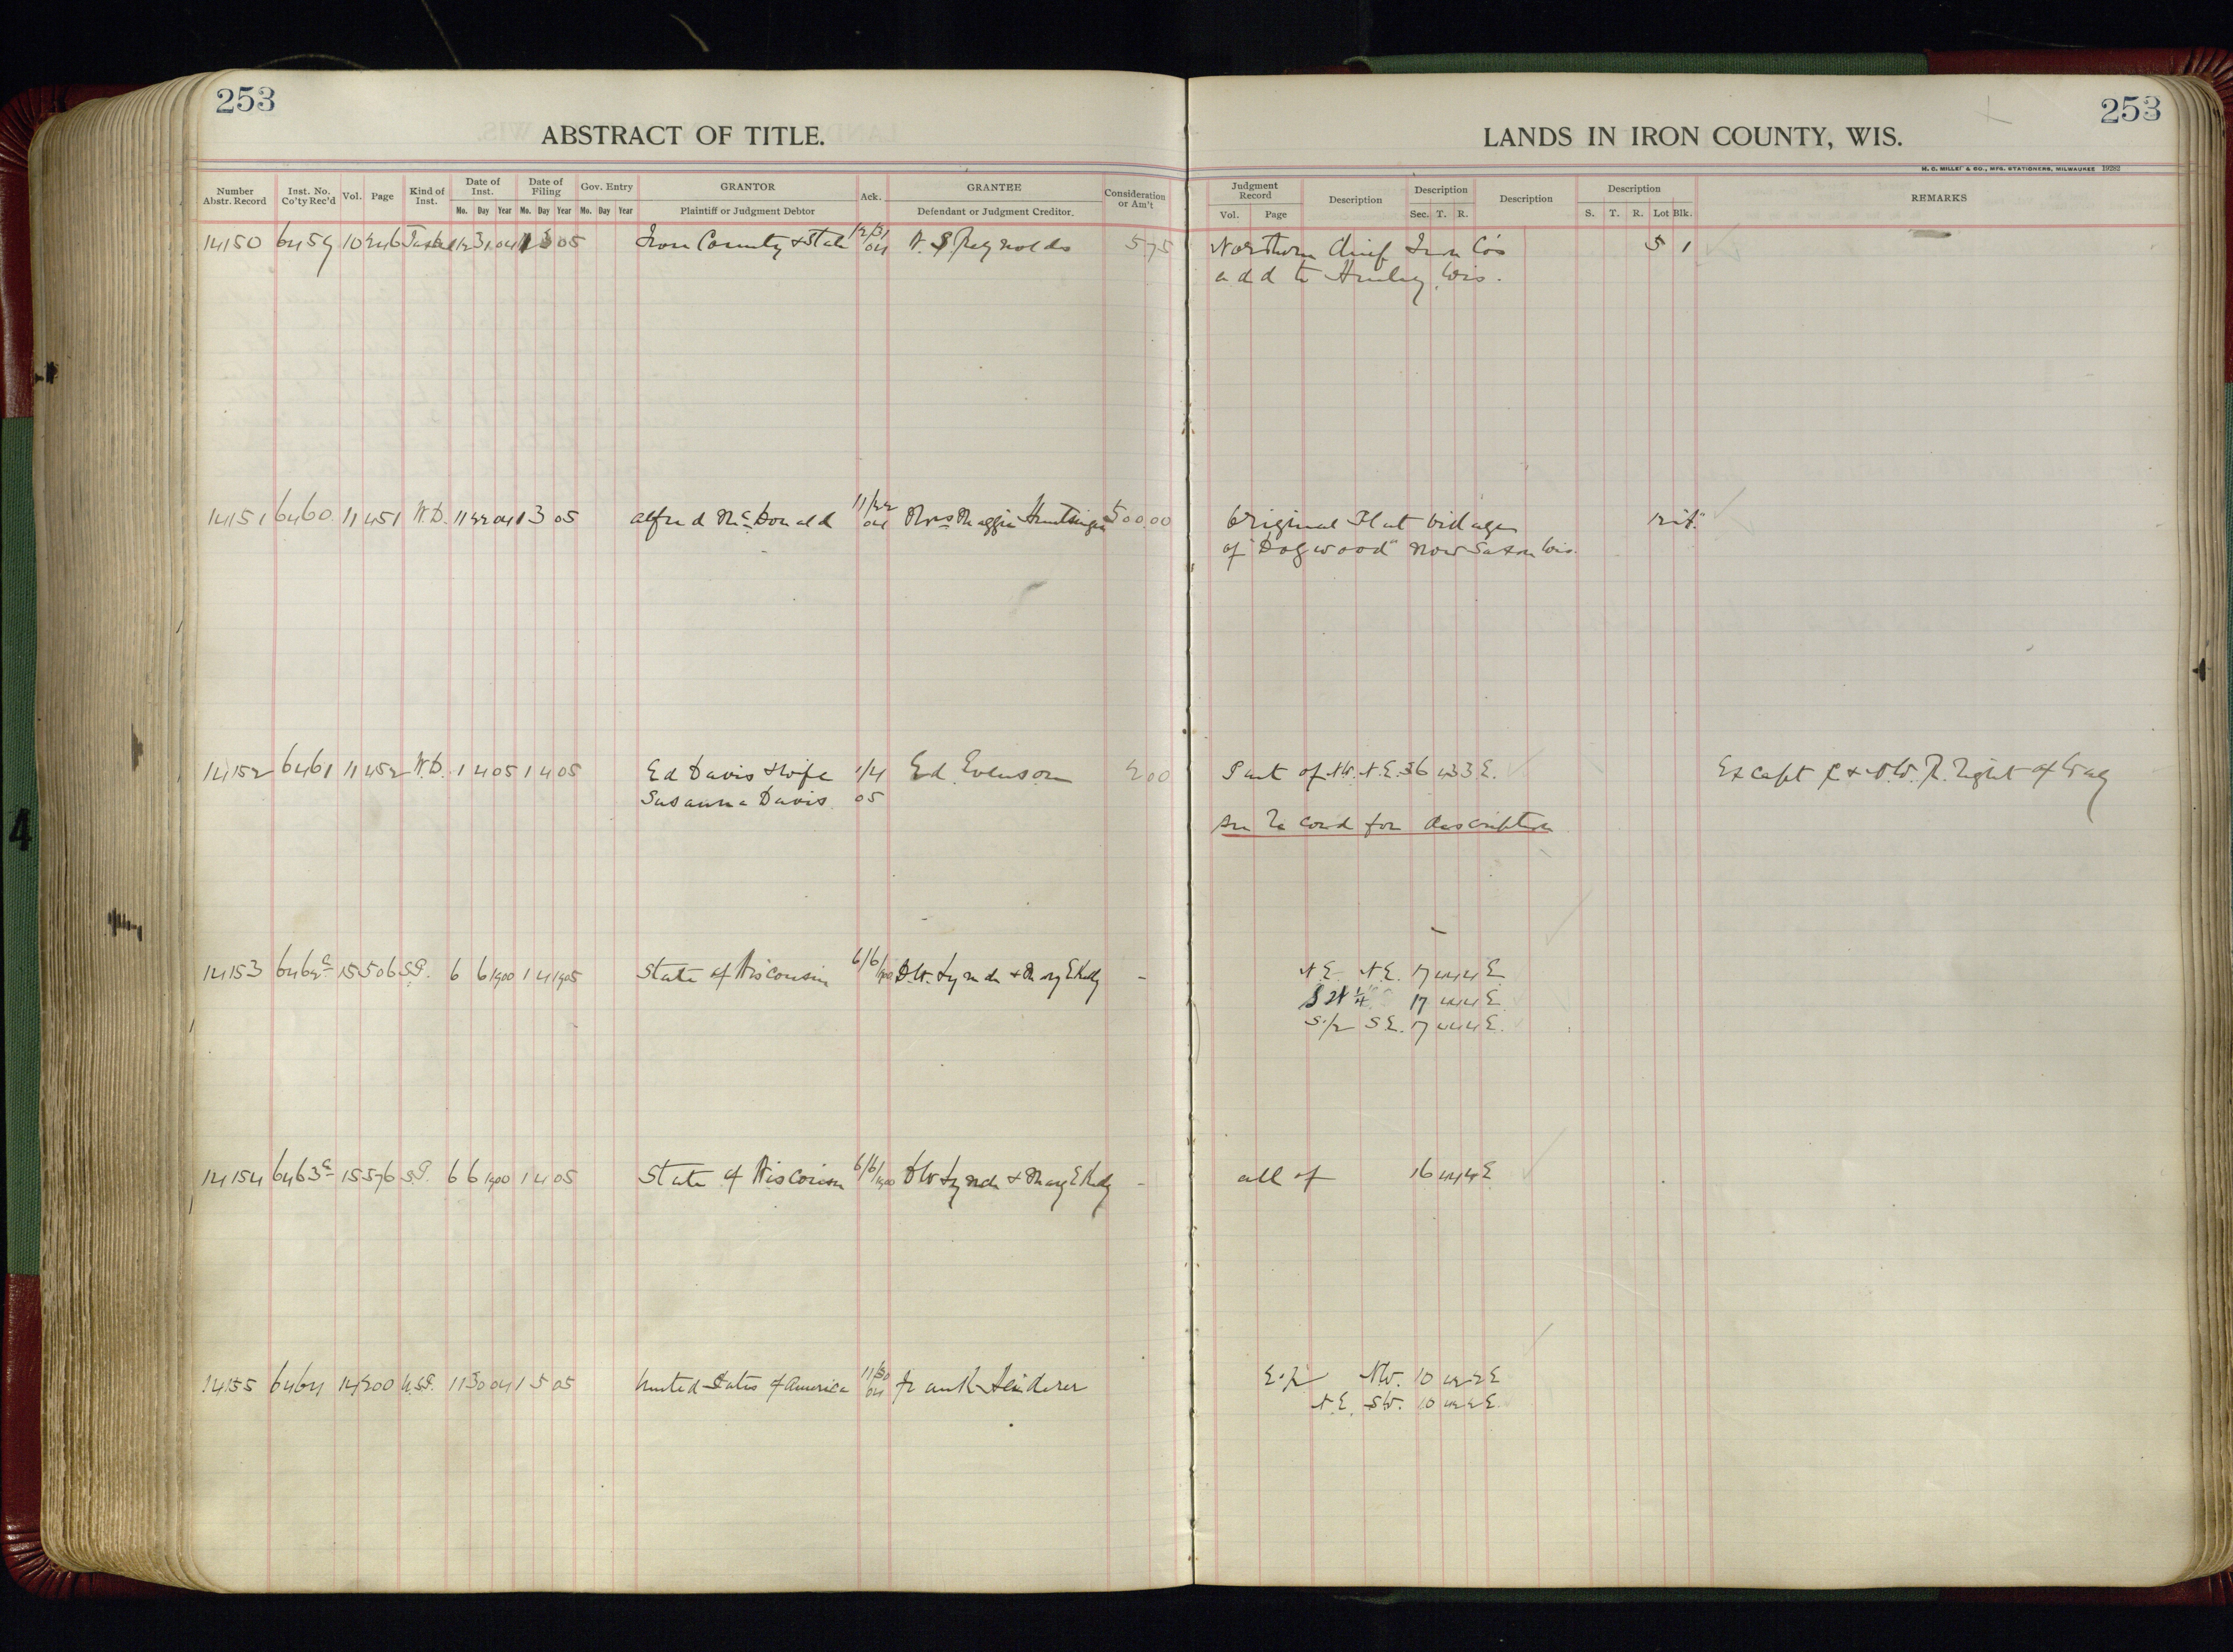 253
253
ABSTRACT OF TITLE.
LANDS IN IRON COUNTY, WIS.
H. C. MILLER & CO., MFG. STATIONERS, MILWAUKEE 19282
Number Abstr. Record Inst. No. Co'ty Rec'd Vol. Page Kind of Inst. Date of Inst. Mo. Day Year Date of Filing Mo. Day Year Gov. Entry Mo. Day Year GRANTOR Plaintiff or Judgment Debtor Ack. GRANTEE Defendant or Judgment Creditor. Consideration or Am't
Judgment Record Vol. Page Description Description Sec. T. R. Description Description S. T. R. Lot Blk. REMARKS
14150 6459 10 246 12 31 04 1 3 05 Iron County & State 12/31 04 W. S. Reynolds 5.75 Northern Chief Iron Co's 5 1
add to Hurley, Wis.
14151 6460 11 451 W.D. 11 22 04 1 3 05 Alfred McDonald 11/22 04 Mrs Maggie 500.00 Original Plat Village
of "Dogwood" now Saxon Wis.
14152 6461 11 452 W.D. 1 4 05 1 4 05 Ed Davis & wife 1/4 Ed. Evenson 200 Part of N.W. N.E. 36 3 E. Except C & N.W. R. Right of Way
Susanna Davis 05
See Record for description
14153 15 506 S.P. 6 6 1900 1 4 1905 State of Wisconsin 6/6/1900 & Mary E Kelly - N.E. N.E. 17 44 4 E
SW 1/4 17 44 4 E
S 1/2 S.E. 17 44 4 E.
14154 6463a 15 576 S.P. 6 6 1900 1 4 05 State of Wisconsin 6/6/1900 & Mary E Kelly - all of 16 44 4 E
14155 6464 14 200 U.S.P. 11 30 04 1 5 05 United States of America 11/30 04 Frank E 1/2 NW. 10 42 2 E
N.E. SW. 10 42 2 E.
4